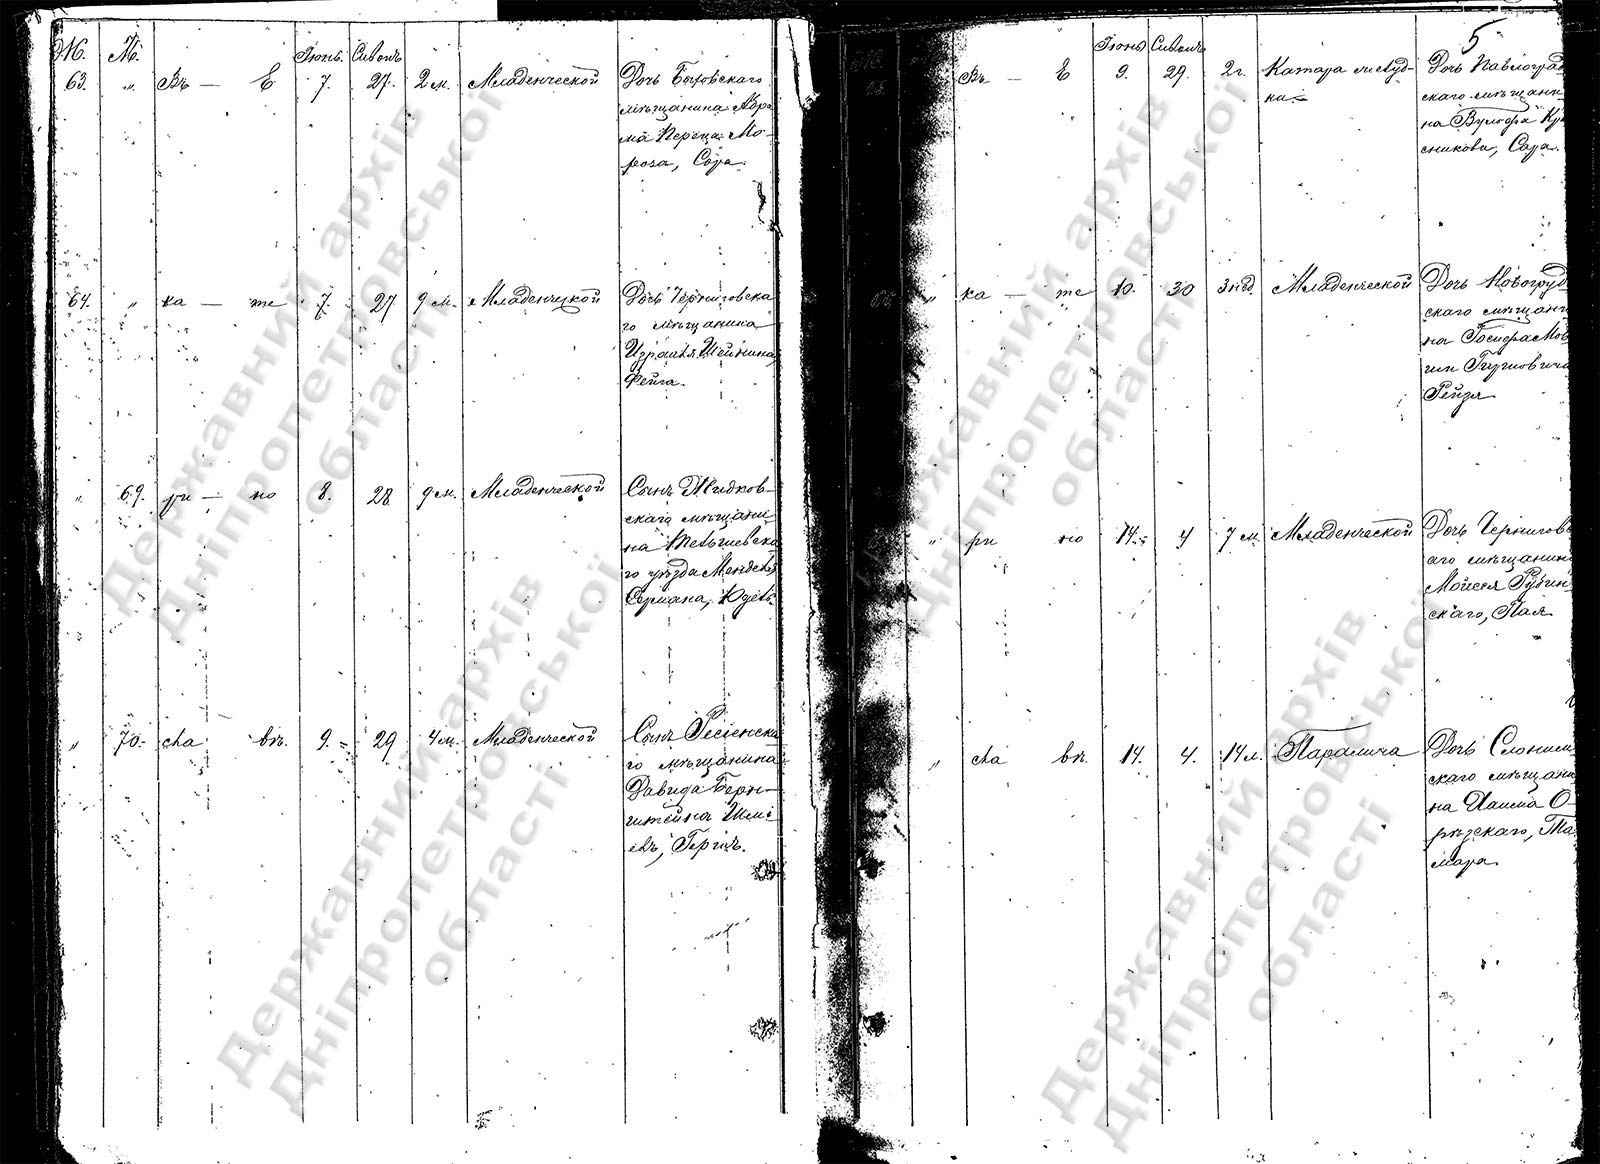 Ж. М. Іюнь. Сивонъ
63. „ Въ — Е 7. 27. 2 м. Младенческой Дочь Быховскаго
мѣщанина Абра
ма Переца Мо-
роза, Сора.
64. „ ка — те 7. 27 9 м. Младенческой Дочь Черниговска
го мѣщанина
Израиля Шейнина
Фейга.
„ 69. ри — но 8. 28 9 м. Младенческой Сынъ Жидков-
скаго мѣщани
на Тельшевска
го уѣзда Менделя
Сермана, Юдель.
„ 70. сла въ. 9. 29 4 м. Младенческой Сынъ Росіенска
го мѣщанина
Давида Берн-
штейна
Герцъ.
5
Іюнь Сивонъ
Въ — Е 9. 29. 2 г. Катара желуд-
ка Дочь Павлоград
скаго мѣщани
на Вульфа
сникова, Сара.
„ ка — те 10. 30 3 нед. Младенческой Дочь Новогруд
скаго мѣщани
на Іосифа Мов
ши Гиршовича
Рейзя
„ ри но 14. 4 7 м. Младенческой Дочь Черниговск
аго мѣщанина
Мойсея Рубин
скаго, Пая
„ сла въ. 14. 4. 14 л. Паралича Дочь Слоним
скаго мѣщани
на Хаима О-
рѣзскаго, Та
мара.
Державний архів
Дніпропетровської
області
Державний архів
Дніпропетровської
області
Державний архів
Дніпропетровської
області
Державний архів
Дніпропетровської
області